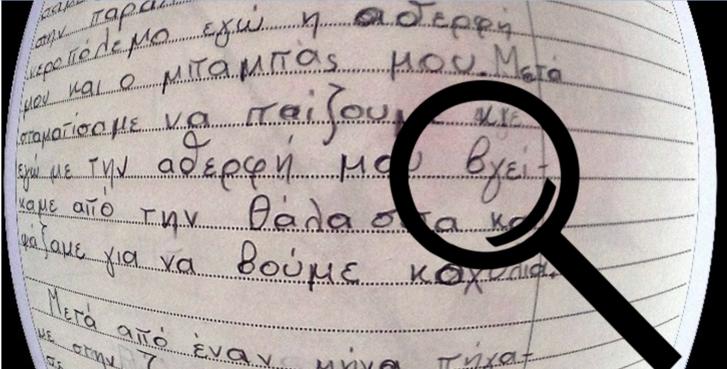 στην παρα
νεροπόλεμο εγώ η αδερφή
μου και ο μπαμπάς μου. Μετά
σταματίσαμε να παίζουμε και
εγώ με την αδερφή μου βγεί-
καμε από την θάλασσα κα
ψάξαμε για να βούμε καχύλια.
Μετά από έναν μήνα πήγα-
με στην
σε